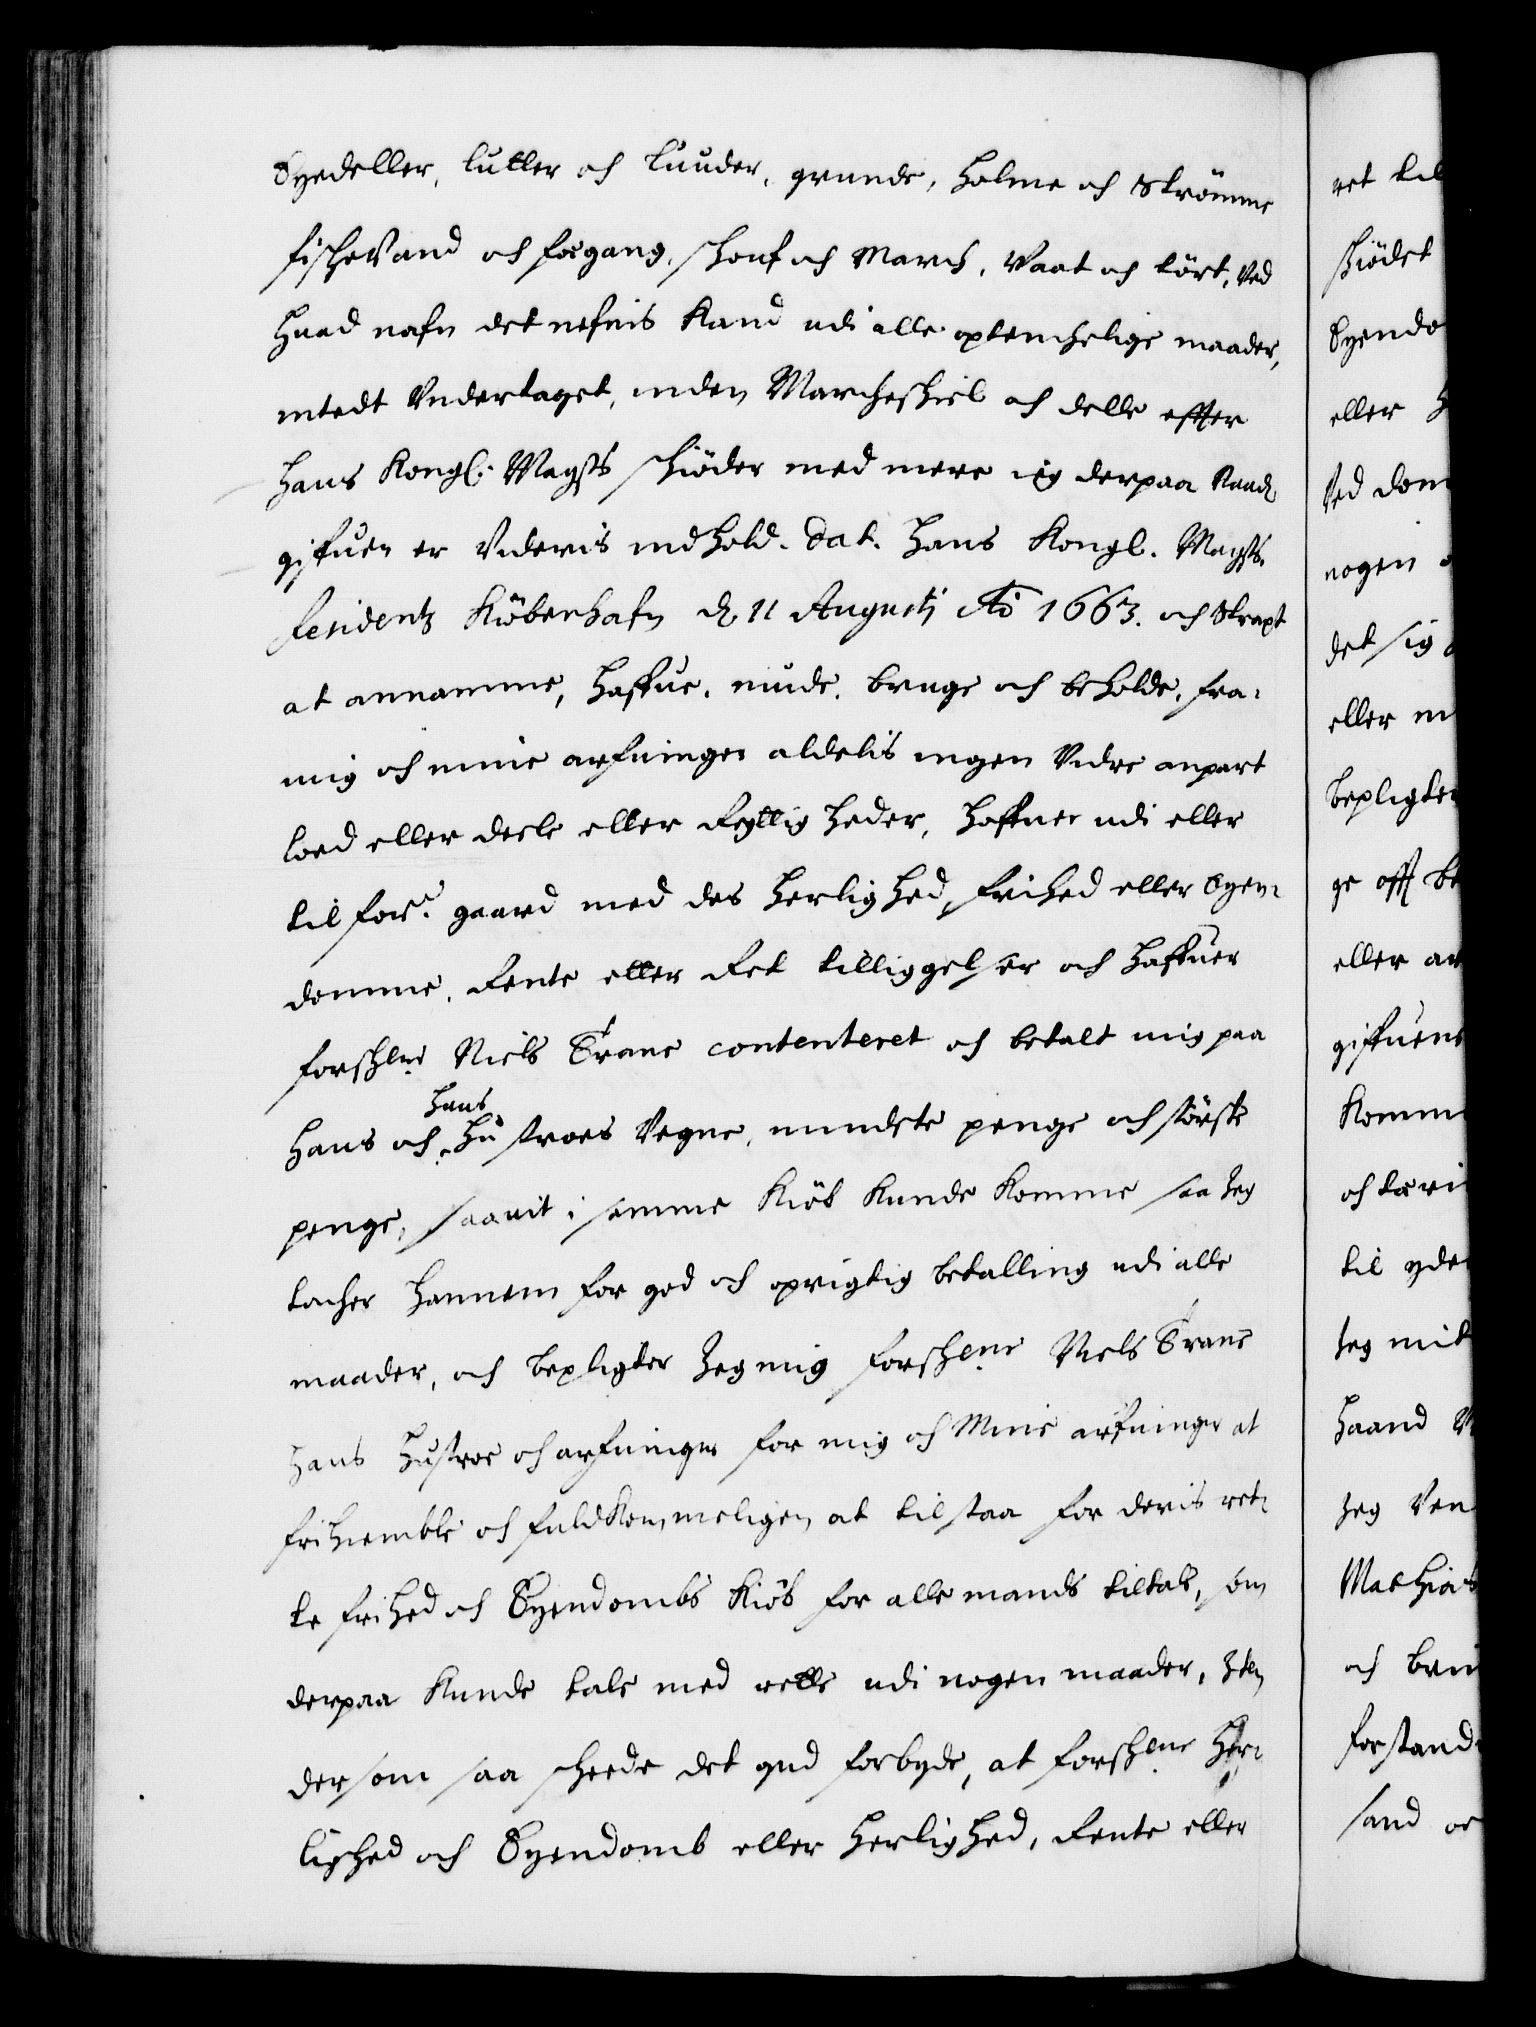 Øyedeller, lutter och Lunder, grunde, holme och Strömme
fischevand och foegang, schouf och March, Vaat och tört, Ved
huad nafn det nefnis Kand udi alle optenchelige maader,
intedt Vndertaget, inden Marcheschiel och delle effter
Hans Kongl: Maysts schiöder med mere ieg derpaa Naad.
gifuen er Videris indhold. Dat. Hans Kongl. Maysts.
Residentz Kiöbenhafn d. 11 Augusti Ao 1663. och Strapt
at annamme, haffue, niude, bruge och beholde, fra-
mig och mine arfuinger aldelis ingen Vidre anpart
loed eller deele eller Rettigheder, haffuer udi eller
til forne gaard med des herlighed, frihed eller Eyen-
domme, Rente eller Ret tilliggelser och haffuer
forschrne Niels Trane contenteret och betalt mig paa
Hans och hans hustroes Vegne, mindste penge och störste
penge, saauit i samme Kiöb Kunde Komme saa Jeg
tacher hannem for god och oprigtig betalling udi alle
maader, och bepligter Jeg mig forschrne Niels Trane
Hans Hustroe och arfuinger for mig och Mine arfuinger at
frihiemble och fuldKommeligen at tilstaa for deris ret-
te frihed och Eyendombs Kiöb for alle mands tiltale, som
derpaa Kunde tale med rette udi nogen maader, Item
dersom saa scheede det gud forbyde, at forschrne Her-
lighed och Eyendomb eller herlighed, Rente eller

ret til
schiödet
Eyendo
eller H
Ved dom
nogen
det sig
eller m
bepligter
ge off be
eller ar
giffuens
Komm
och tari
til yde
Jeg mit
haand V
Jeg Ven
Mathias
och Brii
forstand
sand oc